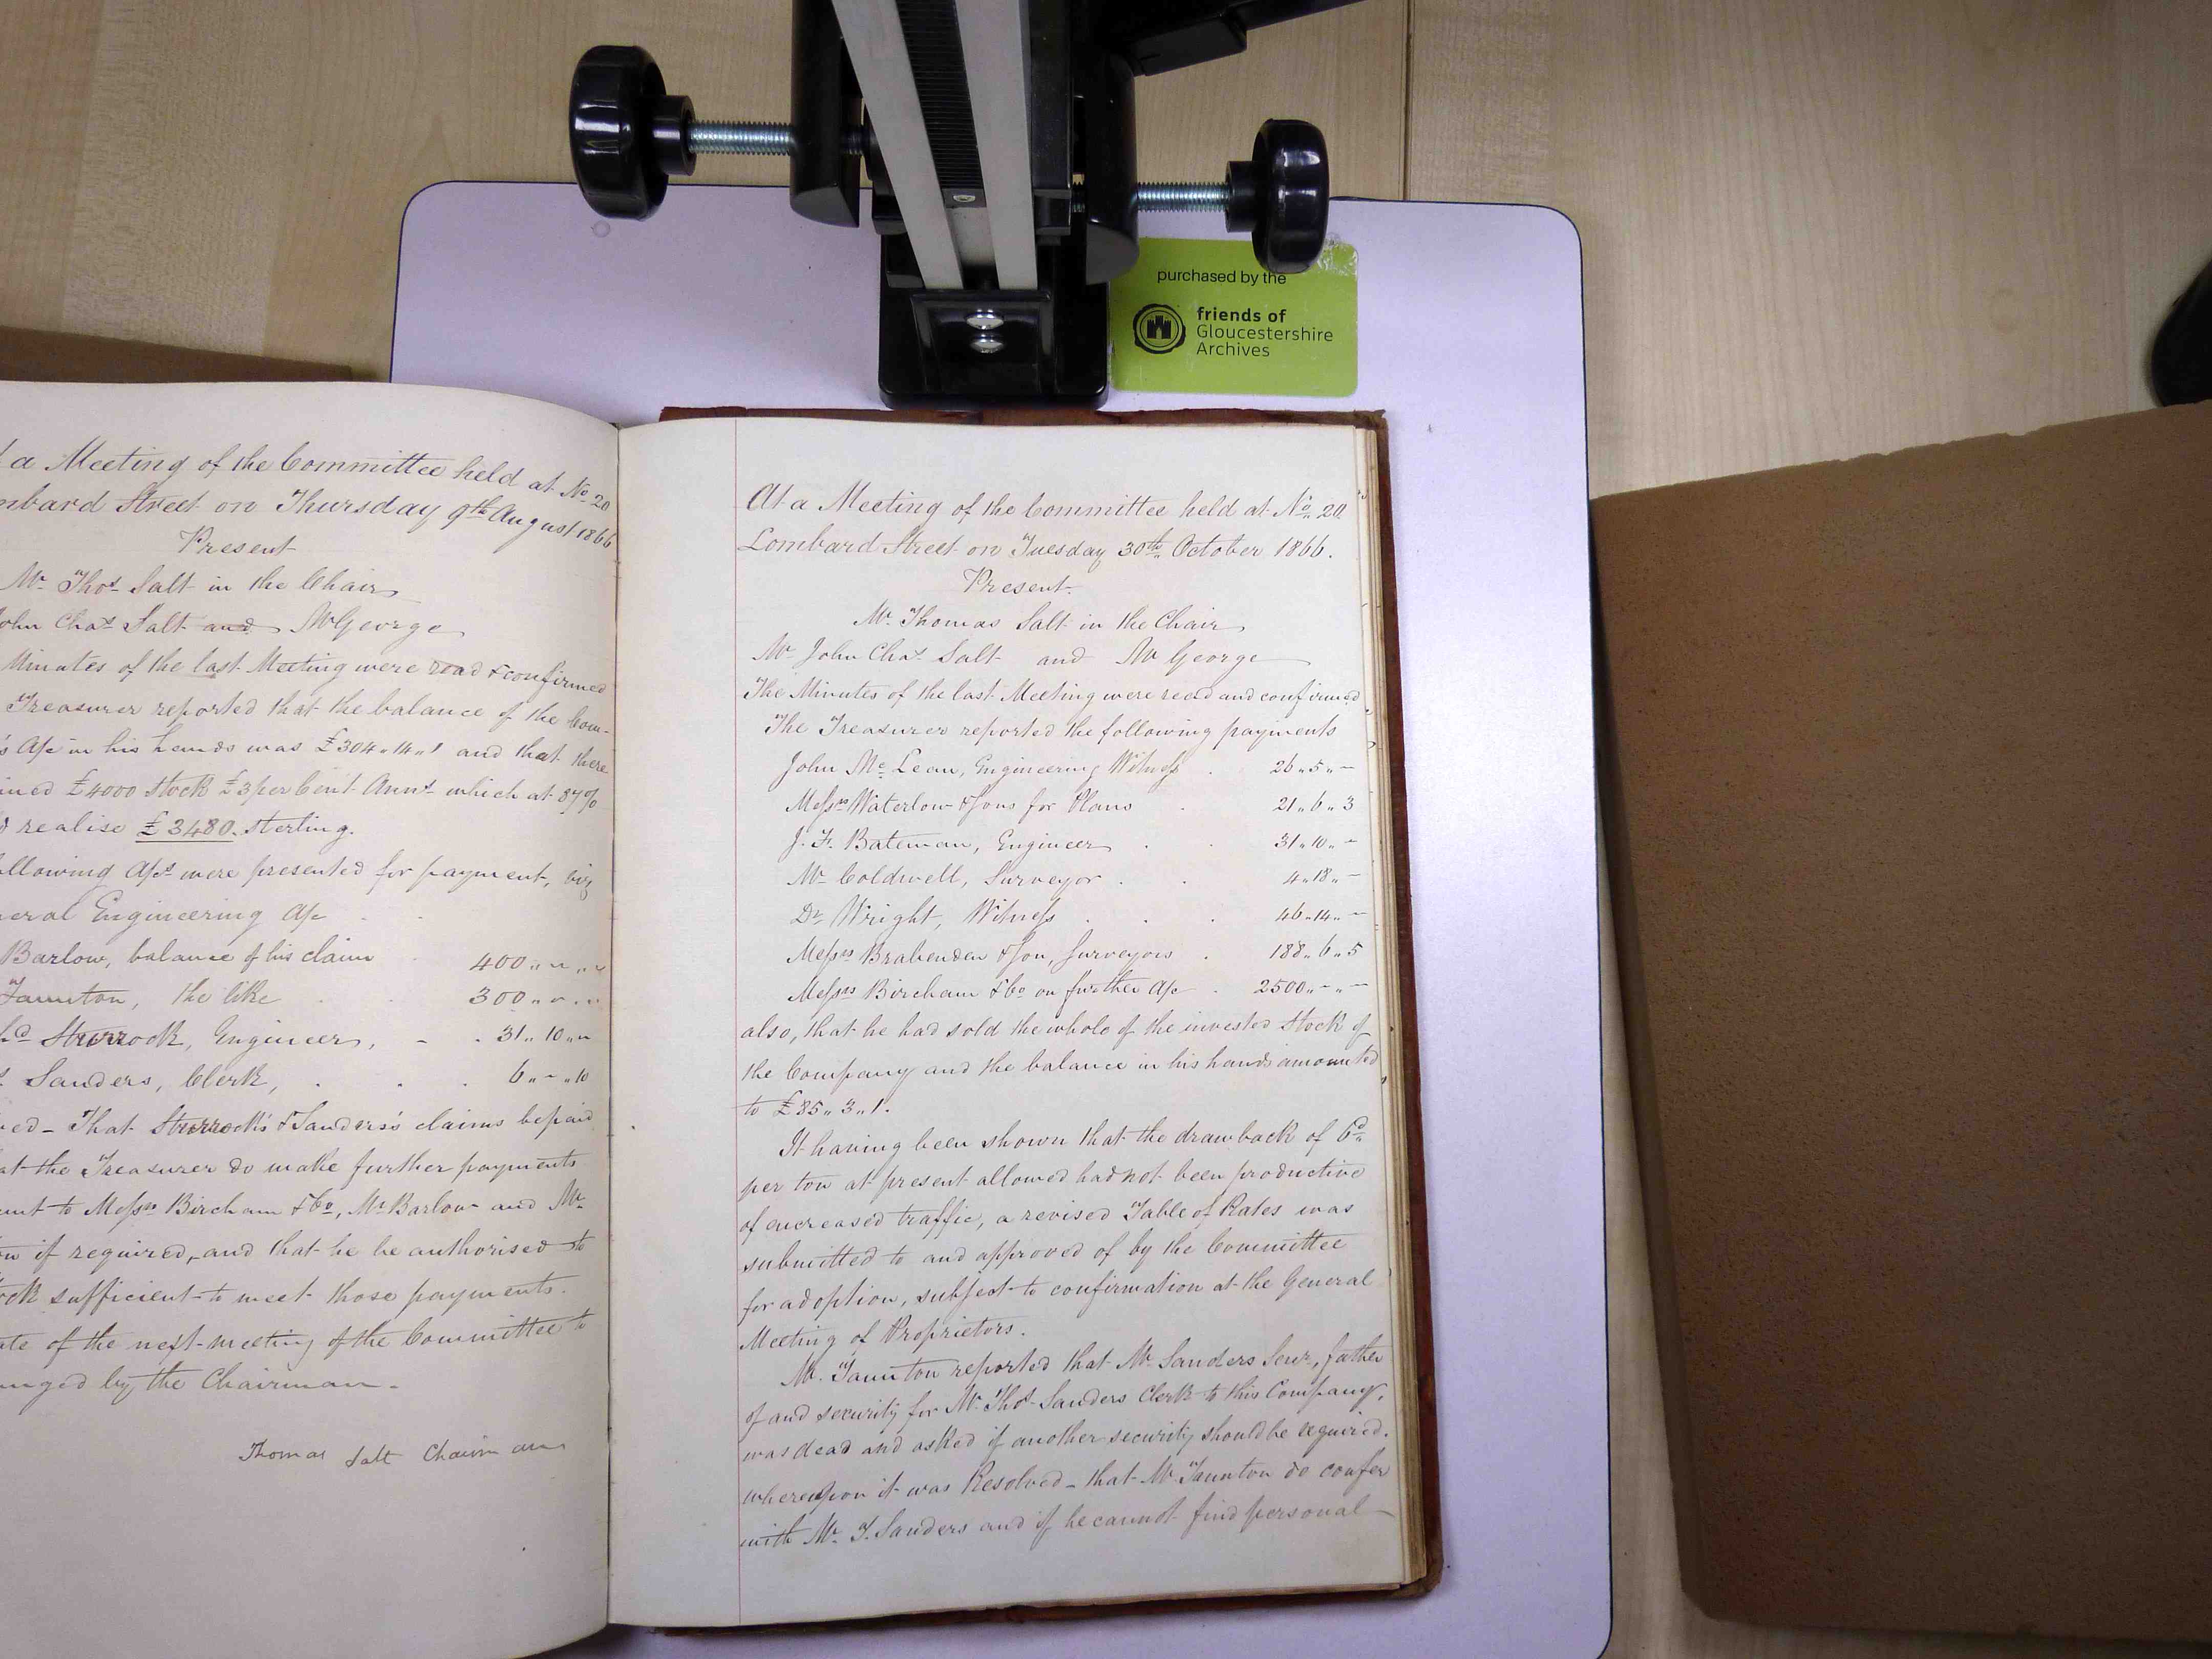 purchased by the
friends of
Gloucestershire
Archives
a Meeting of the Committee held at No. 20
mbard Street on Thursday 9th August 1866
Present
Mr. Thos. Salt in the Chair
ohn Chas. Salt and Mr George
Minutes of the last Meeting were read & confirmed
Treasurer reported that the balance of the Com-
s A/c in his hands was £304„14„1 and that there
ined £4000 Stock £3 per Cent Anns. which at 87%
d realise £3480. sterling.
ollowing A/cs were presented for payment, viz
neral Engineering A/c
Barlow, balance of his claim 400„ „ „
Taunton, the like 300„ „ „
Sturrock, Engineer, 31„10„ „
Sanders, Clerk, 6„-„10
ved - That Sturrock's & Sanders's claims be paid
at the Treasurer do make further payments
unt to Messrs Bircham & Co., Mr Barlow and Mr
n if required, and that he be authorised to
ock sufficient to meet those payments.
ate of the next meeting of the Committee to
anged by the Chairman.
Thomas Salt Chairman
At a Meeting of the Committee held at No. 20
Lombard Street on Tuesday 30th October 1866.
Present
Mr. Thomas Salt in the Chair
Mr John Chas. Salt and Mr George
The Minutes of the last Meeting were read and confirmed
The Treasurer reported the following payments
John McLean, Engineering Witness 26„5„-
Messrs Waterlow & Sons for Plans 21„6„3
J. F. Bateman, Engineer 31„10„-
Mr Coldwell, Surveyor 4„18„-
Dr. Wright, Witness 46„14„-
Messrs Brabenden & Son, Surveyors 188„6„5
Messrs Bircham & Co on further A/c 2500„-„-
also, that he had sold the whole of the invested Stock of
the Company and the balance in his hands amounted
to £85„3„1.
It having been shown that the drawback of 6d
per ton at present allowed had not been productive
of encreased traffic, a revised Table of Rates was
submitted to and approved of by the Committee
for adoption, subject to confirmation at the General
Meeting of Proprietors.
Mr. Taunton reported that Mr Sanders Senr, father
of and security for Mr. Thos. Sanders Clerk to this Company,
was dead and asked if another security should be required.
whereupon it was Resolved - that Mr Taunton do confer
with Mr. T. Sanders and if he cannot find personal